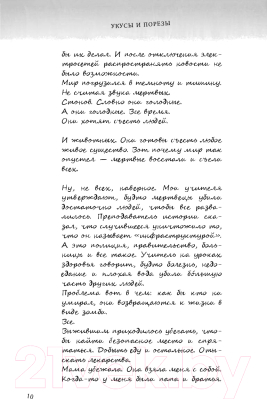 УКУСЫ И ПОРЕЗЫ
бы их делал. И после отключения элек-
тросетей распространять новости не
было возможности.
Мир погрузился в темноту и тишину.
Не считая звука мертвых.
Стонов. Словно они голодные.
А они голодные. Все время.
Они хотят съесть людей.
И животных. Они готовы съесть любое
живое существо. Вот почему мир так
опустел — мертвые восстали и съели
всех.
Ну, не всех, наверное. Мои учителя
утверждают, будто мертвецы убили
достаточно людей, чтобы все разва-
лилось. Преподаватель истории ска-
зал, что случившееся уничтожило то,
что он называет «инфраструктурой».
А это полиция, правительство, боль-
ницы и все такое. Учитель на уроках
здоровья говорит, будто болезни, недо-
едание и плохая вода убили бóльшую
часть других людей.
Проблема вот в чем: как бы кто ни
умирал, они возвращаются к жизни в
виде зомби.
Все.
Выжившим приходилось убегать, что-
бы найти безопасное место и спря-
таться. Добыть еду и остальное. Оты-
скать лекарства.
Мама убежала. Она взяла меня с собой.
Когда-то у меня были папа и братья.
10